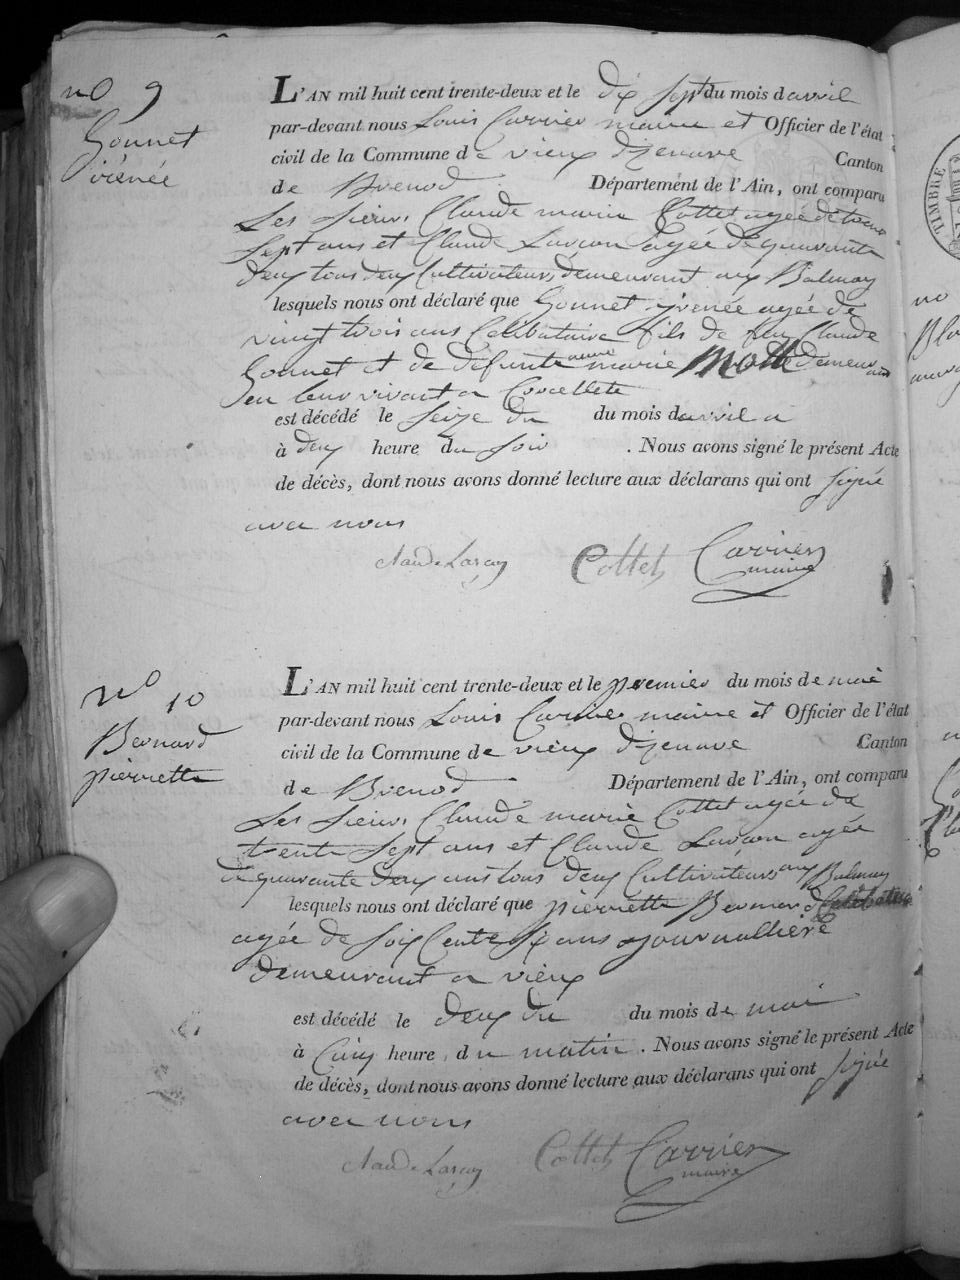 no 9
Gonnet
irénée
L'AN mil huit cent trente-deux et le dix sept du mois d avril
par-devant nous Louis Carrier maire et Officier de l'état
civil de la Commune de vieux d'izenave Canton
de Brenod Département de l'Ain, ont comparu
Les Sieurs Claude marie Cottet agée de trente
Sept ans et Claude Larçon agée de quarante
deux tous deux Cultivateurs demeurant aux Balmay
lesquels nous ont déclaré que Gonnet yrenée agée de
vingt trois ans Celibataire fils de feu Claude
Gonnet et de defunte marie Mottet demeurant
en leur vivant a Corcellete
est décédé le Seize du du mois d avril a
à deux heure du Soir . Nous avons signé le présent Acte
de décès, dont nous avons donné lecture aux déclarans qui ont signé
avec nous
Claude Larçon Cottet Carrier
maire
no 10
Bernard
pierrette
L'AN mil huit cent trente-deux et le premier du mois de mai
par-devant nous Louis Carrier maire et Officier de l'état
civil de la Commune de vieux d'izenave Canton
de Brenod Département de l'Ain, ont comparu
Les Sieurs Claude marie Cottet agée de
trente Sept ans et Claude Larçon agée
de quarante deux ans tous deux Cultivateurs aux Balmay
lesquels nous ont déclaré que pierrette Bernard Celibataire
agée de Soixente Six ans journalliere
demeurant a vieux
est décédé le deux du du mois de mai
à Cinq heure, du matin . Nous avons signé le présent Acte
de décès, dont nous avons donné lecture aux déclarans qui ont signé
avec nous
Claude Larçon Cottet Carrier
maire
TIMBRE
no